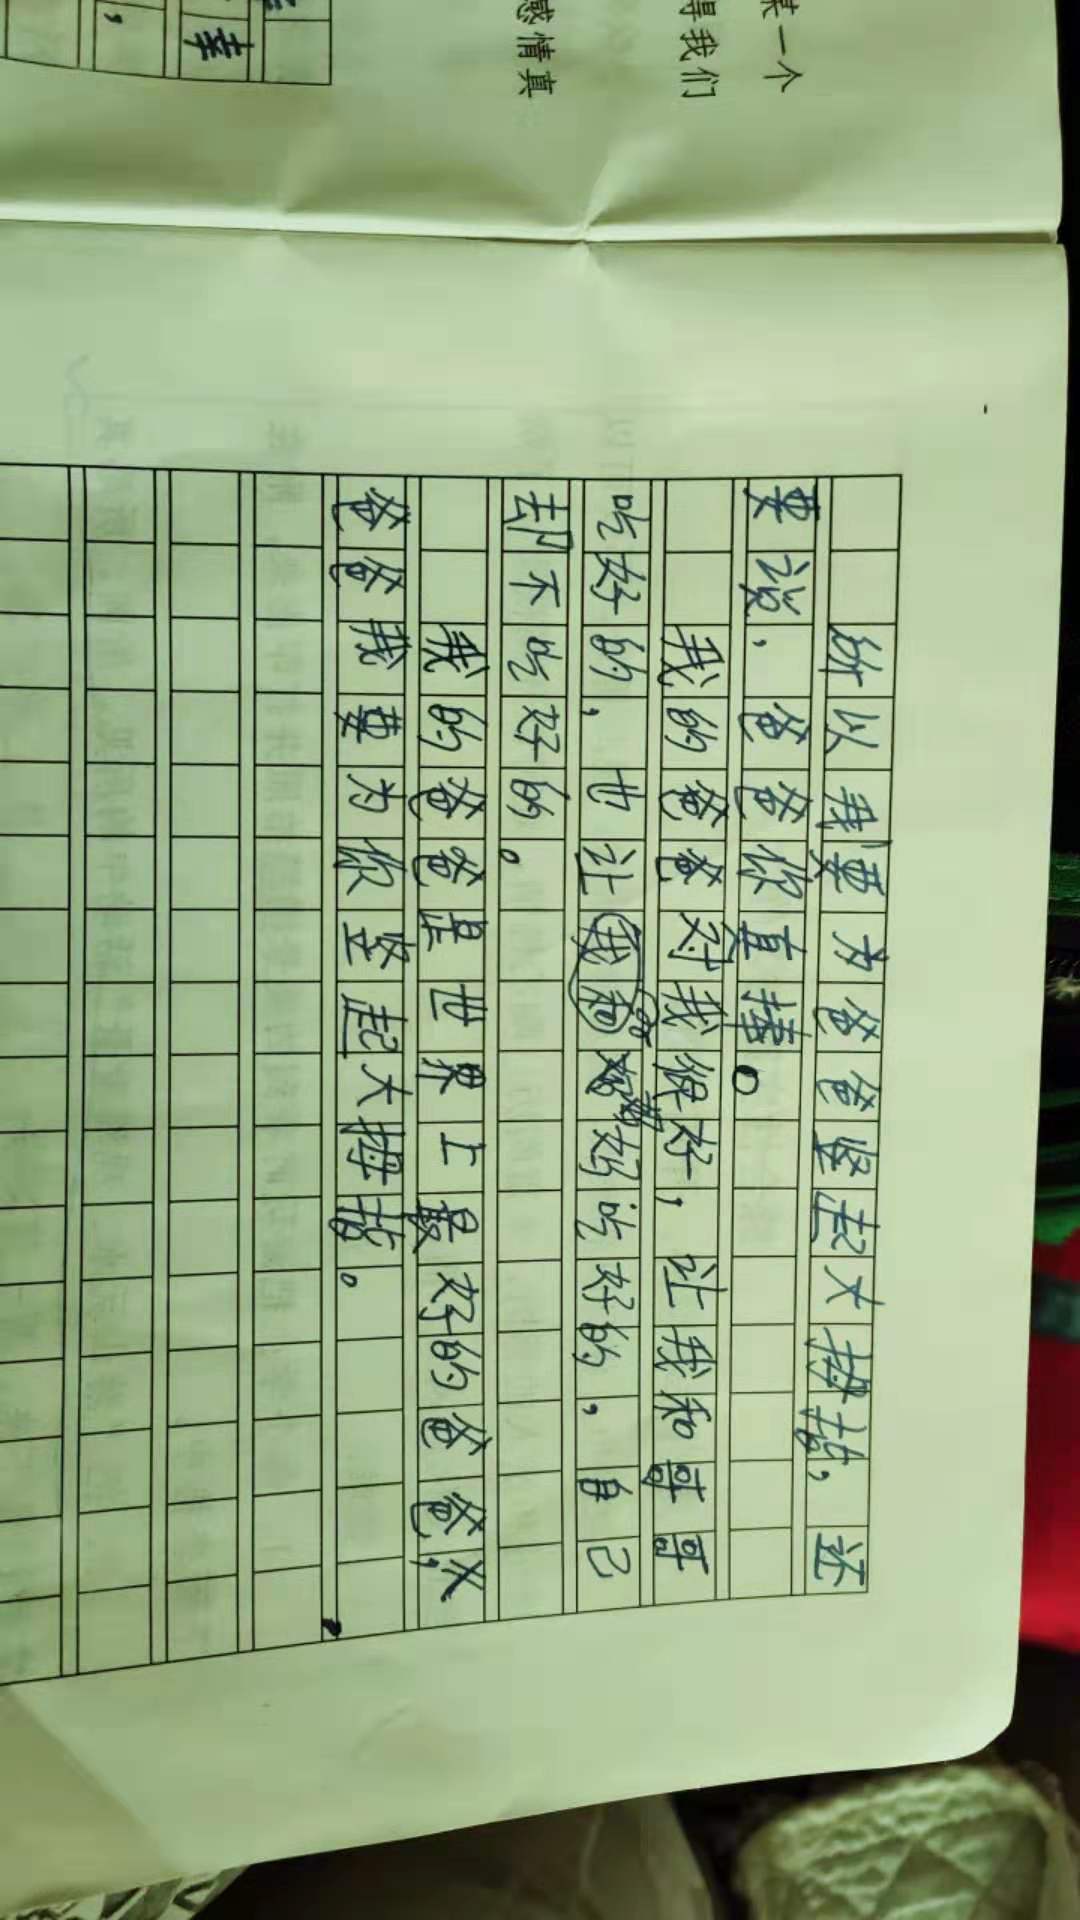 某一个
得我们
感情真
幸
，
所以我要为爸爸竖起大拇指，还
要说，爸爸你真棒。
我的爸爸对我很好，让我和哥哥
吃好的，也让我和妈吃好的，自己
却不吃好的。
我的爸爸是世界上最好的爸爸，
爸爸我要为你竖起大拇指。